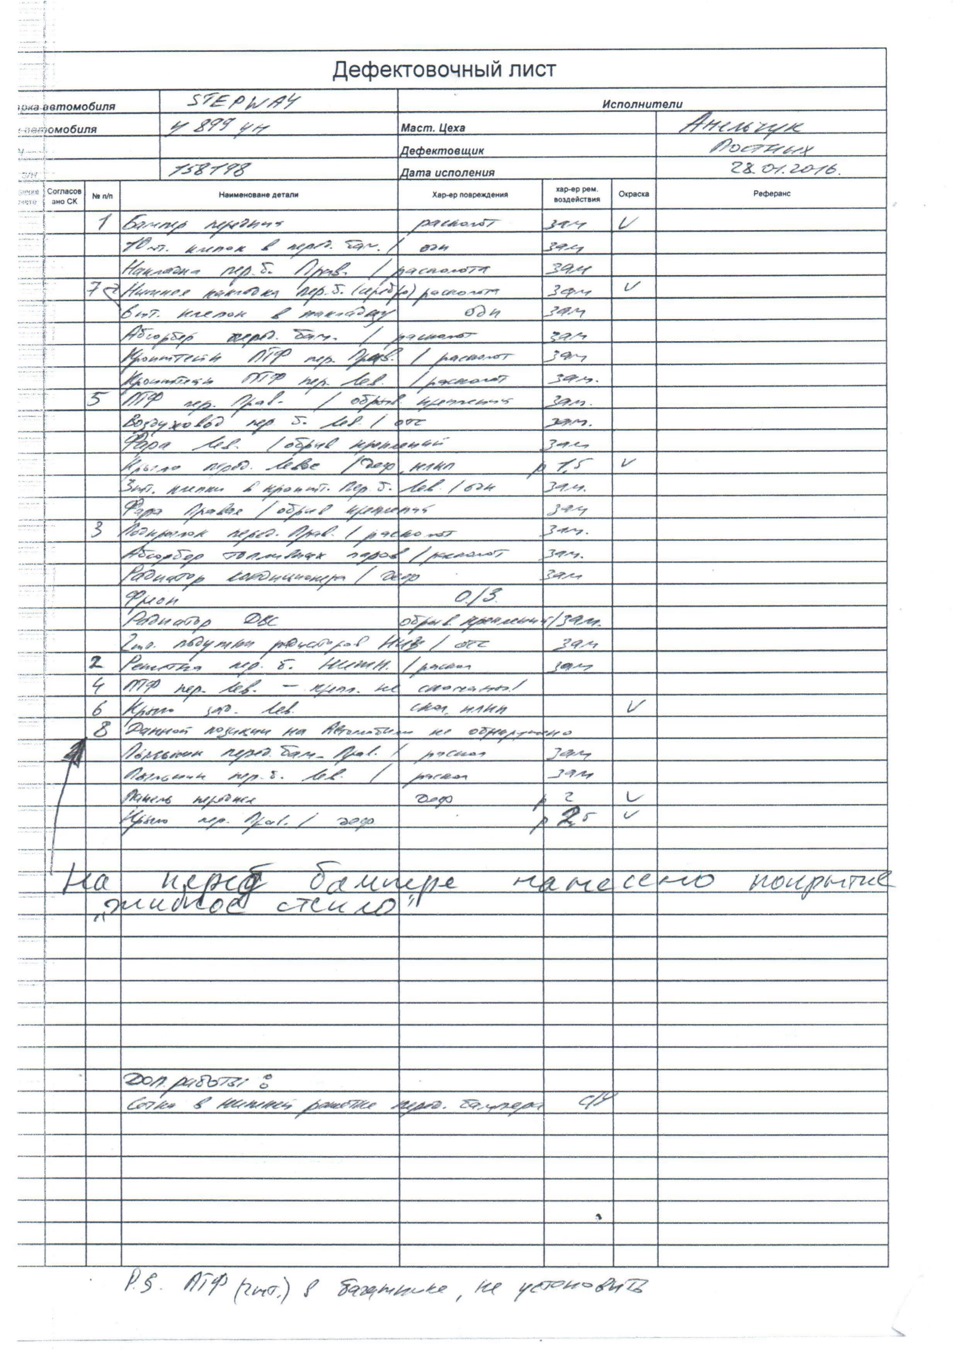 Дефектовочный лист
рка автомобиля STEPWAY Исполнители
автомобиля у 899 ун Маст. Цеха Амельчук
Дефектовщик Постных
158198 Дата исполения 28.01.2016.
Согласов ано СК № п/п Наименоване детали Хар-ер повреждения хар-ер рем. воздействия Окраска Референс
1 Бампер передний расколот зам V
10 шт. клепок в перед. бам. / одн зам
Накладка пер. б. Прав. / расколота зам
7 Нижняя накладка пер. б. (серебро) расколот зам V
6 шт. клепок в накладку одн зам
Абсорбер перед. бам. / расколот зам
Кронштейн ПТФ пер. Прав. / расколот зам
Кронштейн ПТФ пер. Лев. / расколот зам.
5 ПТФ пер. Прав. / обрыв крепления зам.
Воздуховод пер б. Лев. / отс зам.
Фара Лев. / обрыв креплений зам
Крыло перед. Левое / деф, р 1,5 V
3 шт. клепки в кроншт. Пер б. Лев. / одн зам.
Фара Правая / обрыв крепления зам
3 Подкрылок перед. Прав. / расколот зам.
Абсорбер топливных паров / расколот зам.
Радиатор кондиционера / деф зам
Фреон О/З.
Радиатор ДВС обрыв крепления / зам.
2 шт. подушки радиаторов Низ / отс зам
2 Решетка пер. б. Нижн. / раскол зам
4 ПТФ пер. Лев. – креп. не сломаны!
6 Крыло зад. Лев. V
8 Данной позиции на Автомобиле не обнаружено
Пыльник перед. бам. Прав. / раскол зам
Пыльник пер. б. Лев. / раскол зам
Панель передняя деф р 2 V
Крыло пер. Прав. / деф р 2,5 V
На перед бампере нанесено покрытие
"жидкое стекло"
Доп. работы :
Сетка в нижней решетке перед. бампера с/у
P.S. ПТФ (2 шт.) в багажнике, не установить